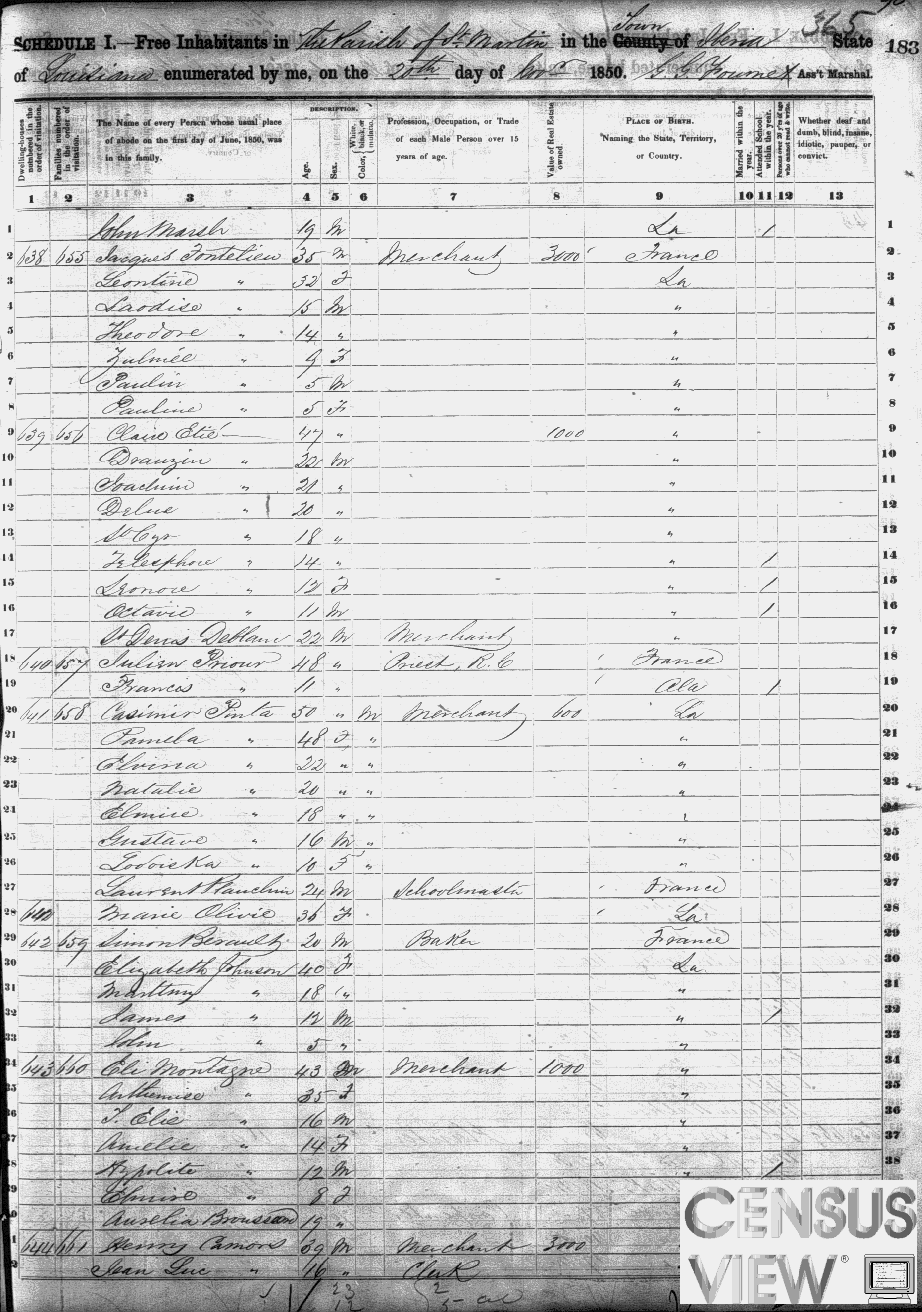 365
183
SCHEDULE I.—Free Inhabitants in the Parish of St Martin in the County Town of Iberia State
of Louisiana enumerated by me, on the 20th day of Novr 1850. Ass't Marshal.
Dwelling-houses numbered in the order of visitation.
Families numbered in the order of visitation.
The Name of every Person whose usual place of abode on the first day of June, 1850, was in this family.
DESCRIPTION.
Age.
Sex.
Color, White, black, or mulatto.
Profession, Occupation, or Trade of each Male Person over 15 years of age.
Value of Real Estate owned.
PLACE OF BIRTH. Naming the State, Territory, or Country.
Married within the year.
Attended School within the year.
Persons over 20 y'rs of age who cannot read & write.
Whether deaf and dumb, blind, insane, idiotic, pauper, or convict.
1 2 3 4 5 6 7 8 9 10 11 12 13
1 John Marsh 19 M La 1 1
2 638 655 Jacques Fontelieu 35 M Merchant 3000 France 2
3 Leontine " 32 F La 3
4 Laodise " 15 M " 4
5 Theodore " 14 " " 5
6 Zulmée " 9 F " 6
7 Paulin " 5 M " 7
8 Pauline " 5 F " 8
9 639 656 Claire Etié 47 " 1000 " 9
10 Drauzin " 22 M " 10
11 Joachim " 21 " " 11
12 Delue " 20 " " 12
13 St Cyr " 18 " " 13
14 Telesphore " 14 " " 1 14
15 Leonore " 12 F " 1 15
16 Octavie " 11 M " 1 16
17 St Denis Deblanc 22 M Merchant " 17
18 640 657 Julien Priour 48 " Priest, R.C France 18
19 Francis " 11 " Ala 1 19
20 641 658 Casimir Pinta 50 " M Merchant 600 La 20
21 Pamela " 48 F " " 21
22 Elvina " 22 " " " 22
23 Natalie " 20 " " " 23
24 Elmire " 18 " " " 24
25 Gustave " 16 M " " 25
26 Lodoiska " 10 F " " 26
27 Laurent Plauchin 24 M Schoolmaster France 27
28 642 Marie Olivie 36 F La 28
29 642 659 Simon Berault 20 M Baker France 29
30 Elizabeth Johnson 40 F La 30
31 " 18 " " 31
32 James " 12 M " 1 32
33 John " 5 " " 33
34 643 660 Eli Montagne 43 M Merchant 1000 " 34
35 Arthemise " 35 F " 35
36 T. Elie " 16 M " 36
37 Amelie " 14 F " 37
38 Hypolite " 12 M " 1 38
39 Elmire " 8 F
Aurelia Broussard 19 "
644 661 Henry Camors 39 M Merchant 3000
Jean Luc " 16 " Clerk
CENSUS
VIEW®